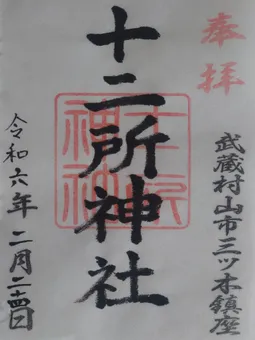 奉拝
武蔵村山市三ツ木鎮座
十二所神社
令和六年 二月二十四日